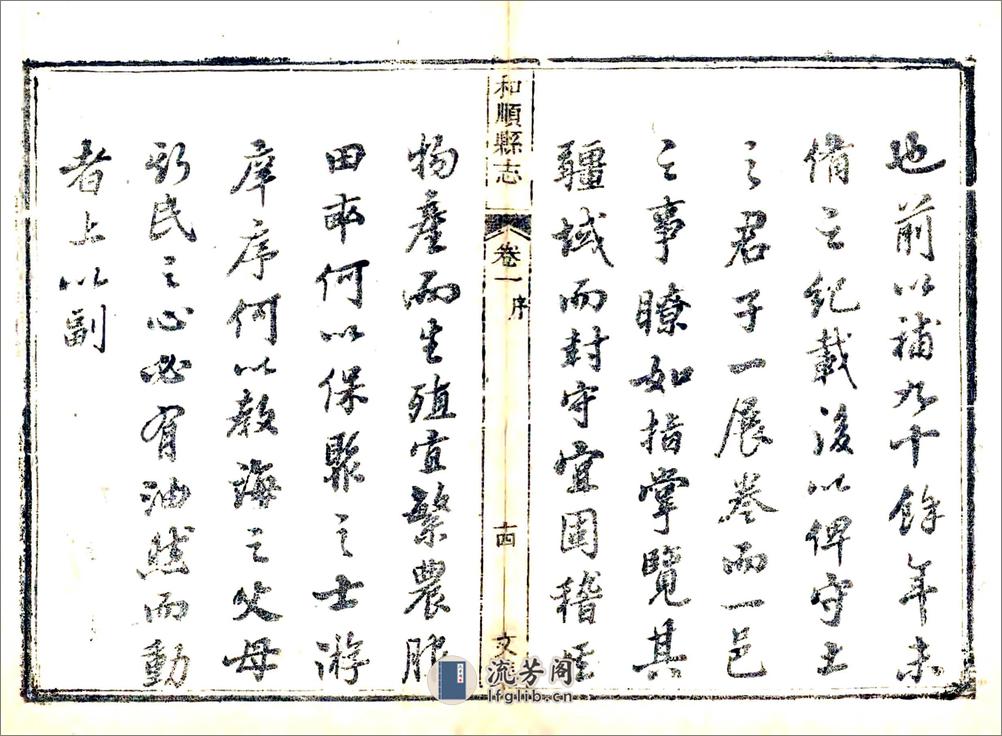 也前以補九十餘年未
備之紀載後以俾守土
之君子一展卷而一邑
之事瞭如指掌覽其
疆域而封守宜固稽
和順縣志
卷一
序
十四
文
物產而生殖宜繁農服
田畝何以保聚之士游
庠序何以教誨之父母
斯民之心必有油然而動
者上以副
流芳阁
lfglib.cn